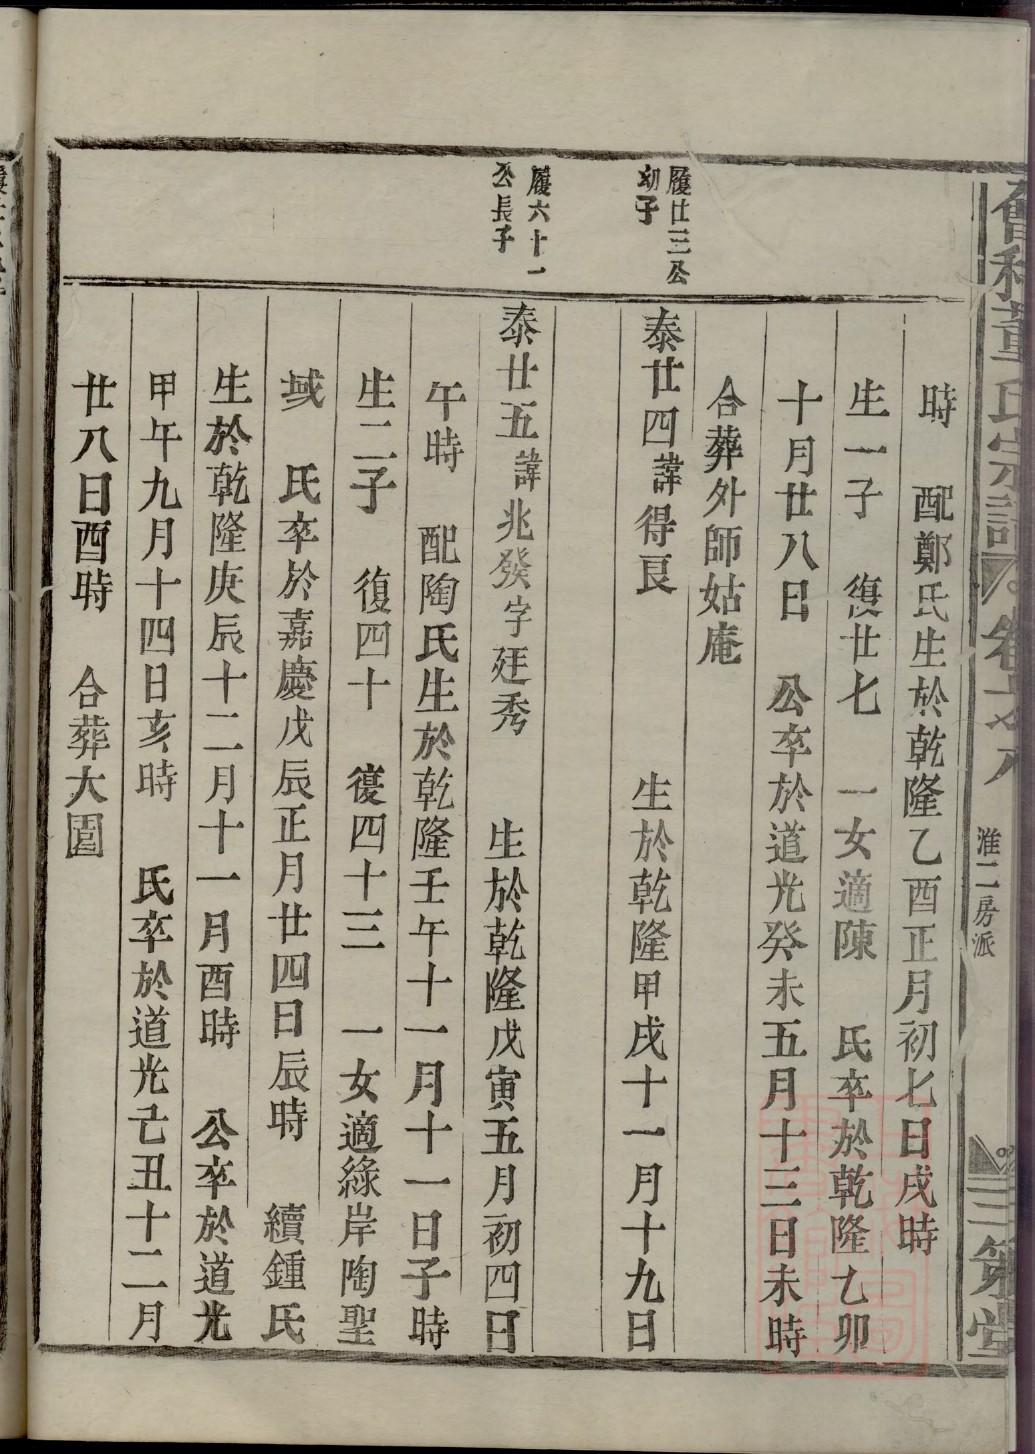 董氏宗譜
淮二房派
三策堂
時 配鄭氏生於乾隆乙酉正月初七日戌時
生一子 復廿七 一女適陳 氏卒於乾隆乙卯
十月廿八日 公卒於道光癸未五月十三日未時
合葬外師姑庵
履廿三公
幼子
泰廿四諱得良 生於乾隆甲戌十一月十九日
履六十一
公長子
泰廿五諱兆發字廷秀 生於乾隆戊寅五月初四日
午時 配陶氏生於乾隆壬午十一月十一日子時
生二子 復四十 復四十三 一女適綠岸陶聖
域 氏卒於嘉慶戊辰正月廿四日辰時 續鍾氏
生於乾隆庚辰十二月十一月酉時 公卒於道光
甲午九月十四日亥時 氏卒於道光己丑十二月
廿八日酉時 合葬大園